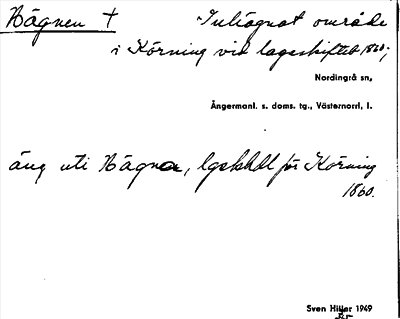 Hägnen † Inhägnat område
i Körning vid lagaskiftet 1860;
Nordingrå sn,
Ångermanl. s. doms. tg., Västernorrl. l.
äng uti Hägna, lgskhdl för Körning
1860.
Sven Hiller 1949